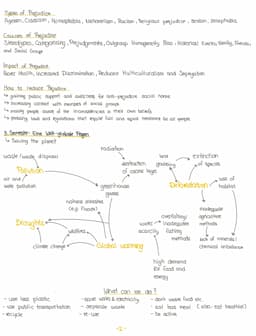 Types of Prejudice
Ageism, Classism, Homophobia, Nationalism, Racism, Religious prejudice, Sexism, Xenophobia
Causes of Prejudice
Stereotypes, Categorizing, Prejudgments, Outgroup Homogeneity Bias, Historical Events, Family, Friends,
and Social Groups
Impact of Prejudice
Poorer Health, Increased Discrimination, Reduced Multiculturalism and Segregation
How to reduce Prejudice
↳ gaining public support and awareness for anti-prejudice social norms
↳ increasing contact with members of social groups
↳ making people aware of the inconsistencies in their own beliefs
↳ passing laws and regulations that require fair and equal treatment for all people
2. Semester: Eine Welt-globale Fragen
↳ Saving the planet
radiation
waste/waste disposal
Pollution
air and
water pollution
destruction
of ozone layer
greenhouse
gases
over
grazing
extinction
of species
Deforestation
loss of
habitat
natural disasters
(e.g. floods)
Droughts
wildfires
climate change
Global warming
water
scarcity
overfishing/
inadequate
fishing
methods
inadequate
agricultural
methods
lack of minerals/
chemical imbalance
high demand
for food and
energy
What can we do?
- use less plastic
- use public transportation
- recycle
- save water & electricity
- separate waste
- re-use
- don't waste food etc.
- eat less meat
- be active
-2-